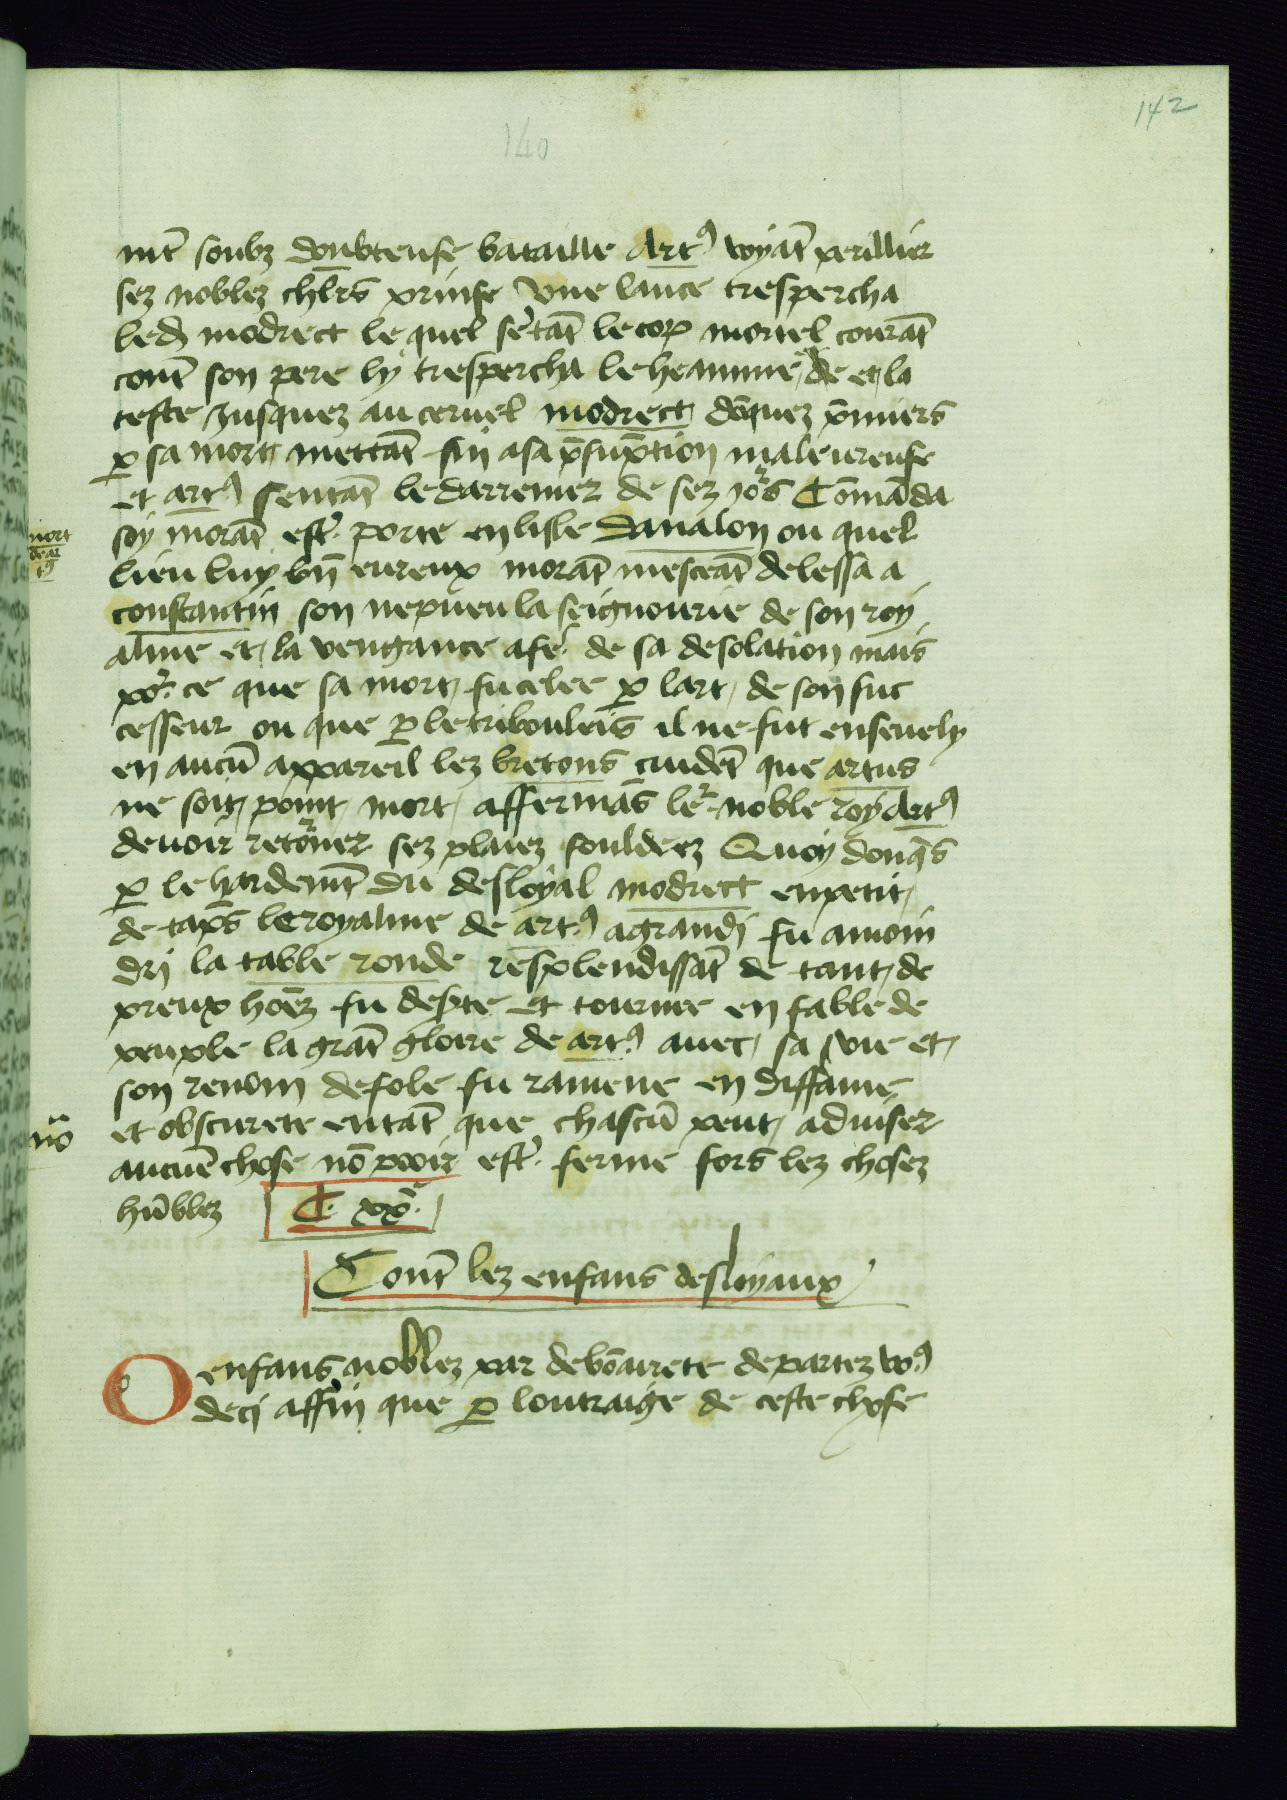 142
140
mt̃ soubz doubteuse bataille Artꝰ voyãt perillier
sez noblez chlr̃s prinse vne lance trespercha
led modrect le quel sẽtãt le cop mortel courãt
cont̃ son pere ly trespercha le heaume de et la
teste jusquez au ceruel modrect dõquez pm̃iers
ꝑ sa mort mettãt fin a sa p̃sũption maleureuse
et artꝰ sentãt le darrenier de sez jors Cõmãda
soy morãt estr̃ porte en lisle danalon ou quel
mort
de ar
tꝰ
lieu luy bñ eureux morãt mesceãt delessa a
constantin son nepueu la seignourie de son roy
alme et la vengance afer̃ de sa desolation mais
por ce que sa mort fu celee ꝑ lart de son suc
cesseur ou que ꝑ le tribouleis il ne fut enseuely
en aucũ appareil lez bretons cuidẽt que artus
ne soit point mort affermãs ler noble roy Artꝰ
deuoir retorner sez plaiez souldeez Quoy donq̃s
ꝑ le hardemt̃ du desloyal modrect en petit
de tãps le royalme de artꝰ agrandi fu amoin
dri la table ronde resplendissãt de tant de
preux hõez fu despte et tournee en fable de
peuple la grãt gloire de artꝰ auec sa vie et
son renom de fole fu ramene en diffame
et obscurete entãt que chascũ peut aduiser
nõ
aucuẽ chose nõ pooir estr̃ ferme fors lez chosez
hũblez C. xxe.
Cont̃ lez enfans desloyaux
O enfans noblez par debõairete departez voꝰ
deci affin que ꝑ loutraige de ceste chose